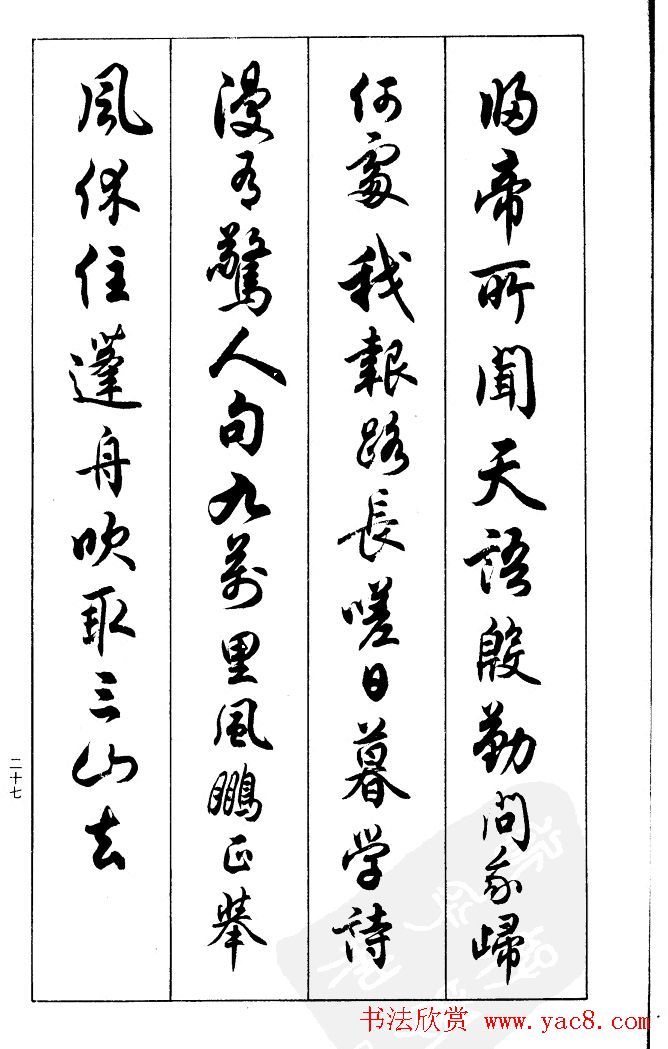 歸帝所聞天語殷勤問我歸
何處我報路長嗟日暮学詩
漫有驚人句九萬里風鵬正舉
風休住蓬舟吹取三山去
二十七
书法欣赏 www.yac8.com